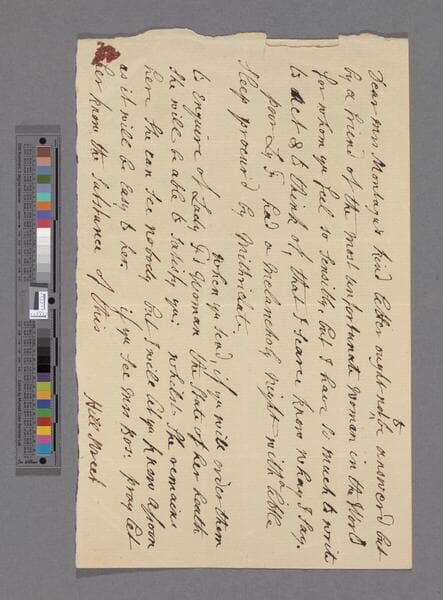 Dear Mrs Montagus kind letter ought not to answerd but
by a friend of the most unfortunate Woman in the World
for whom yu feel so sensible but I have so much to write
to act & to think of, that I scarce know what I say.
poor Ly F. had a melancholy night with little
sleep procurd by Mithridat.
when yu send, if yu will order them
to enquire of Lady Fs Woman the State of her health
She will be able to satisfy yu: whilst She remains
here She can see nobody but I will let yu know as soon
as it will be easy to her. if yu see Mrs Bos: pray let
her know the substance of this
Hill Street